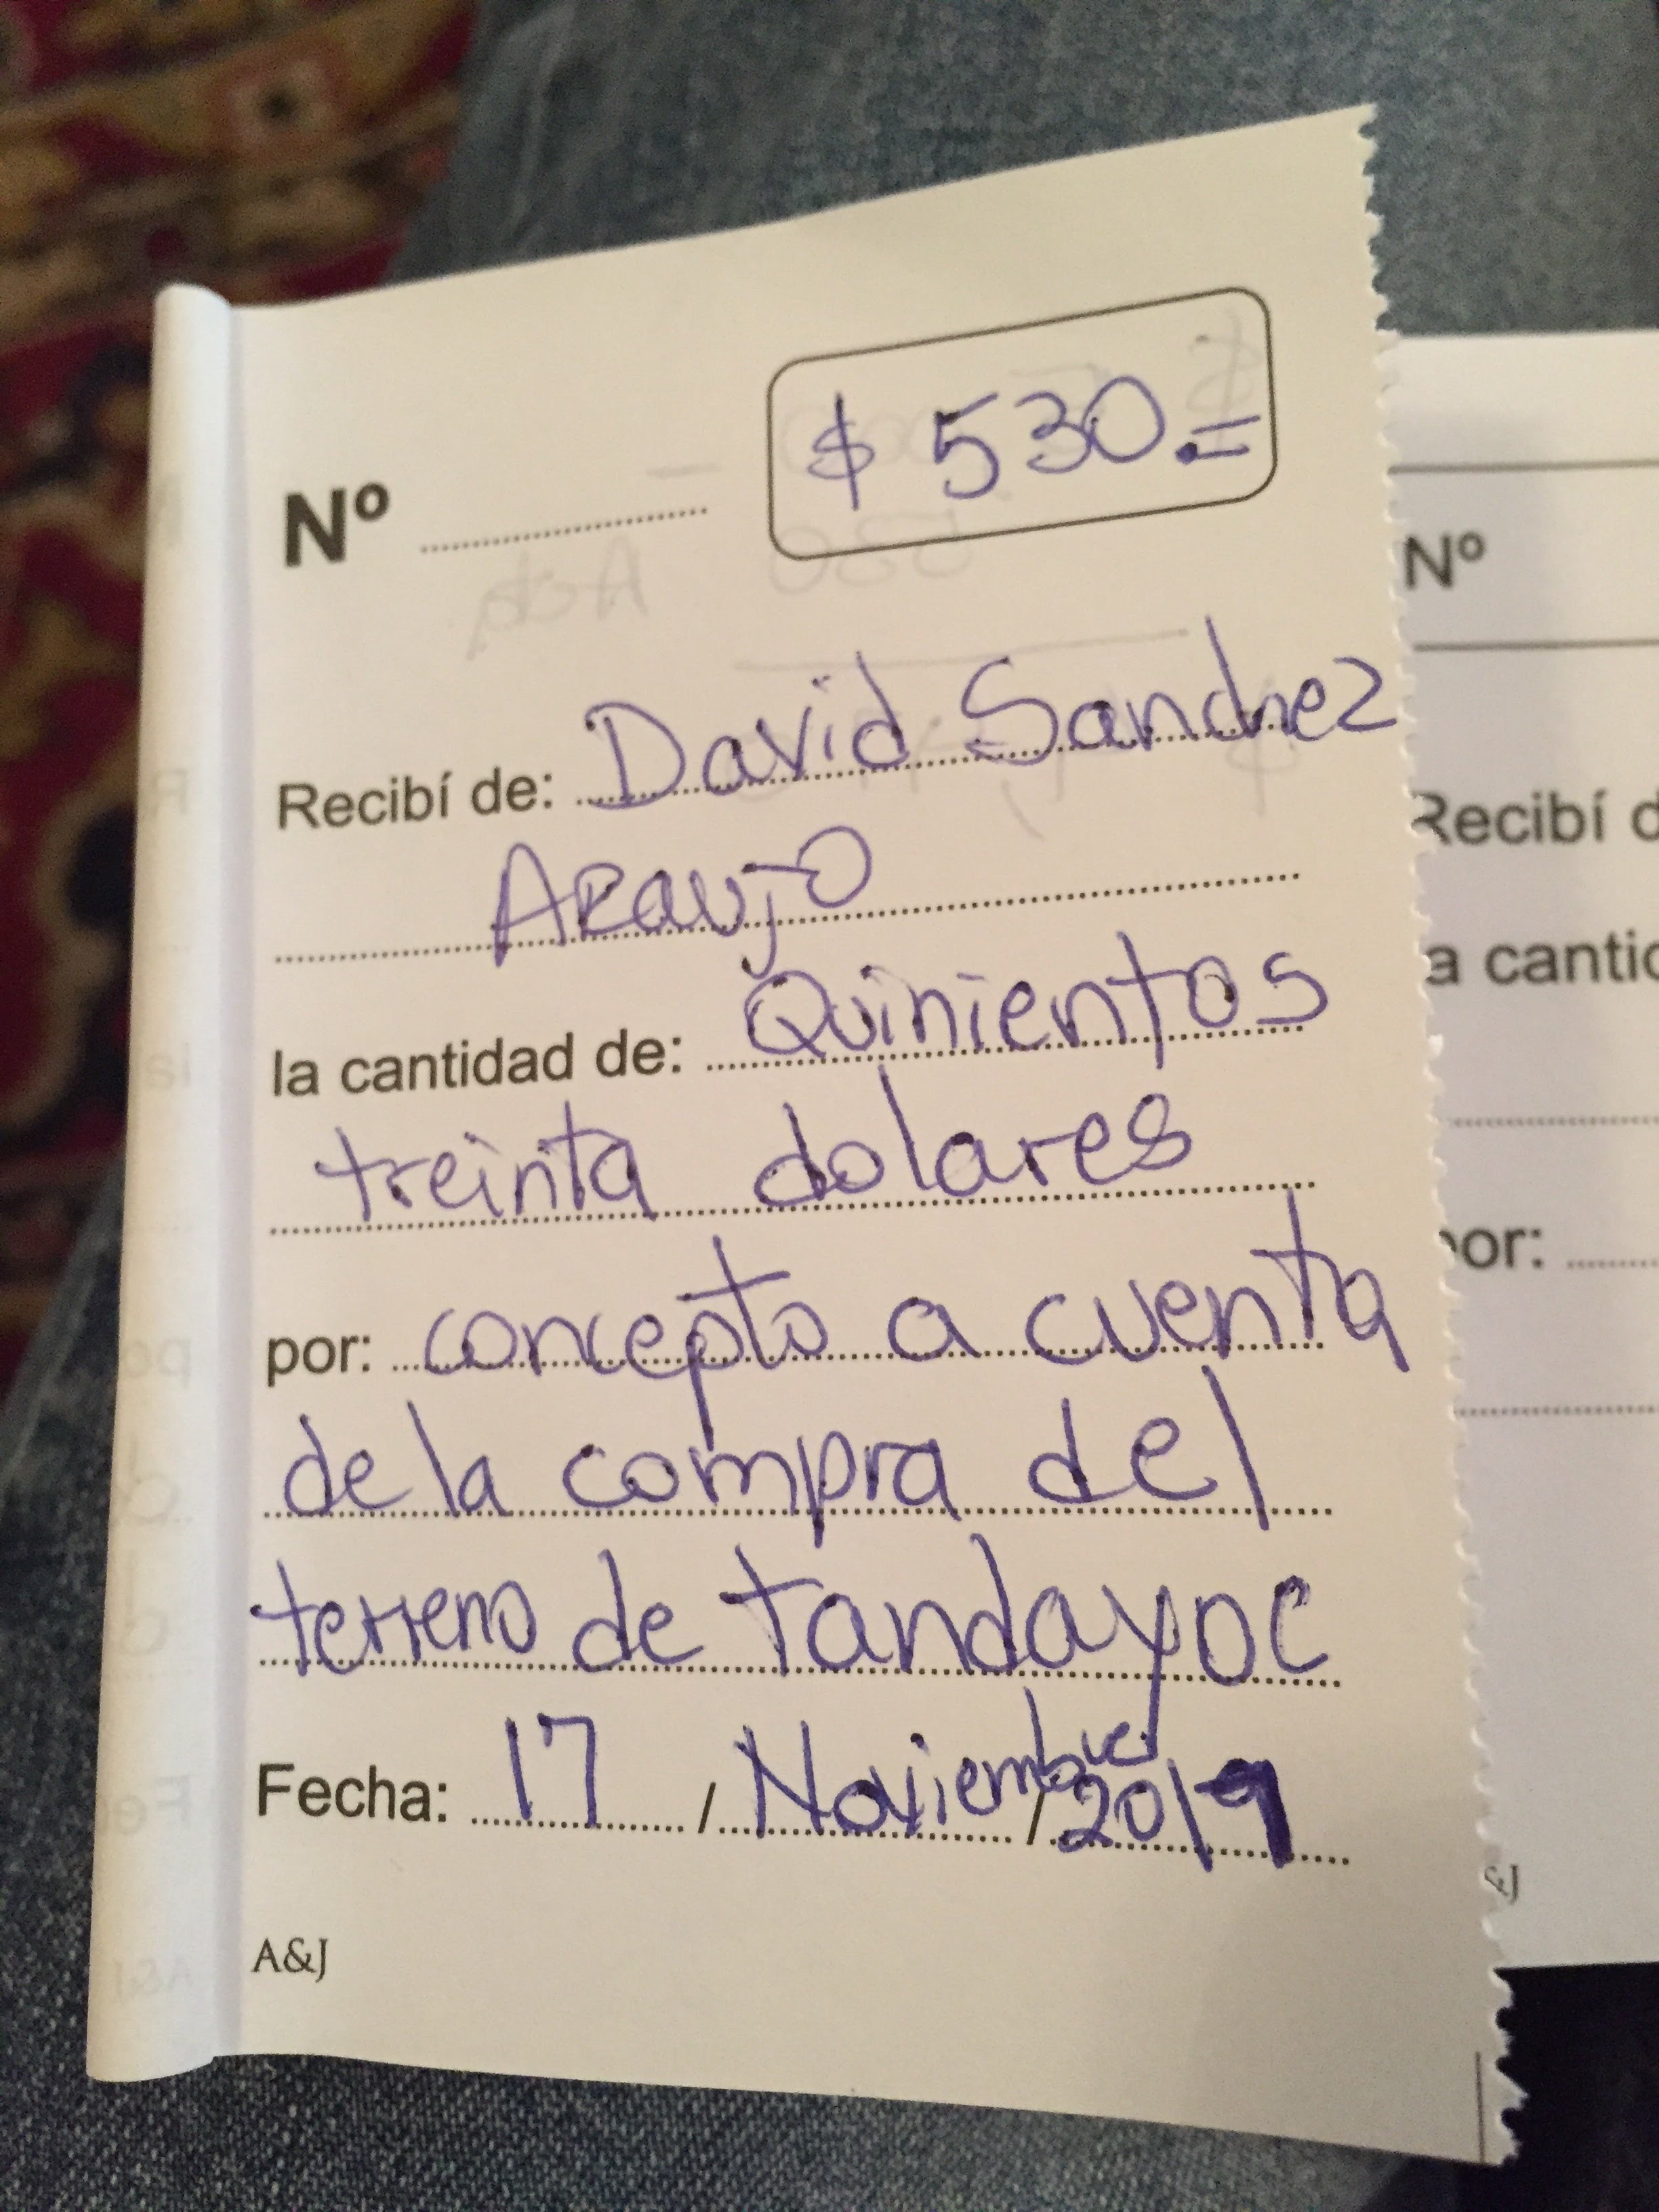 Nº
$ 530.=
Recibí de: David Sanchez
Araujo
la cantidad de: Quinientos
treinta dolares
por: concepto a cuenta
de la compra del
terreno de tandayoc
Fecha: 17 / Noviembre / 2019
A&J
Nº
Recibí d
a cantid
por:
&J